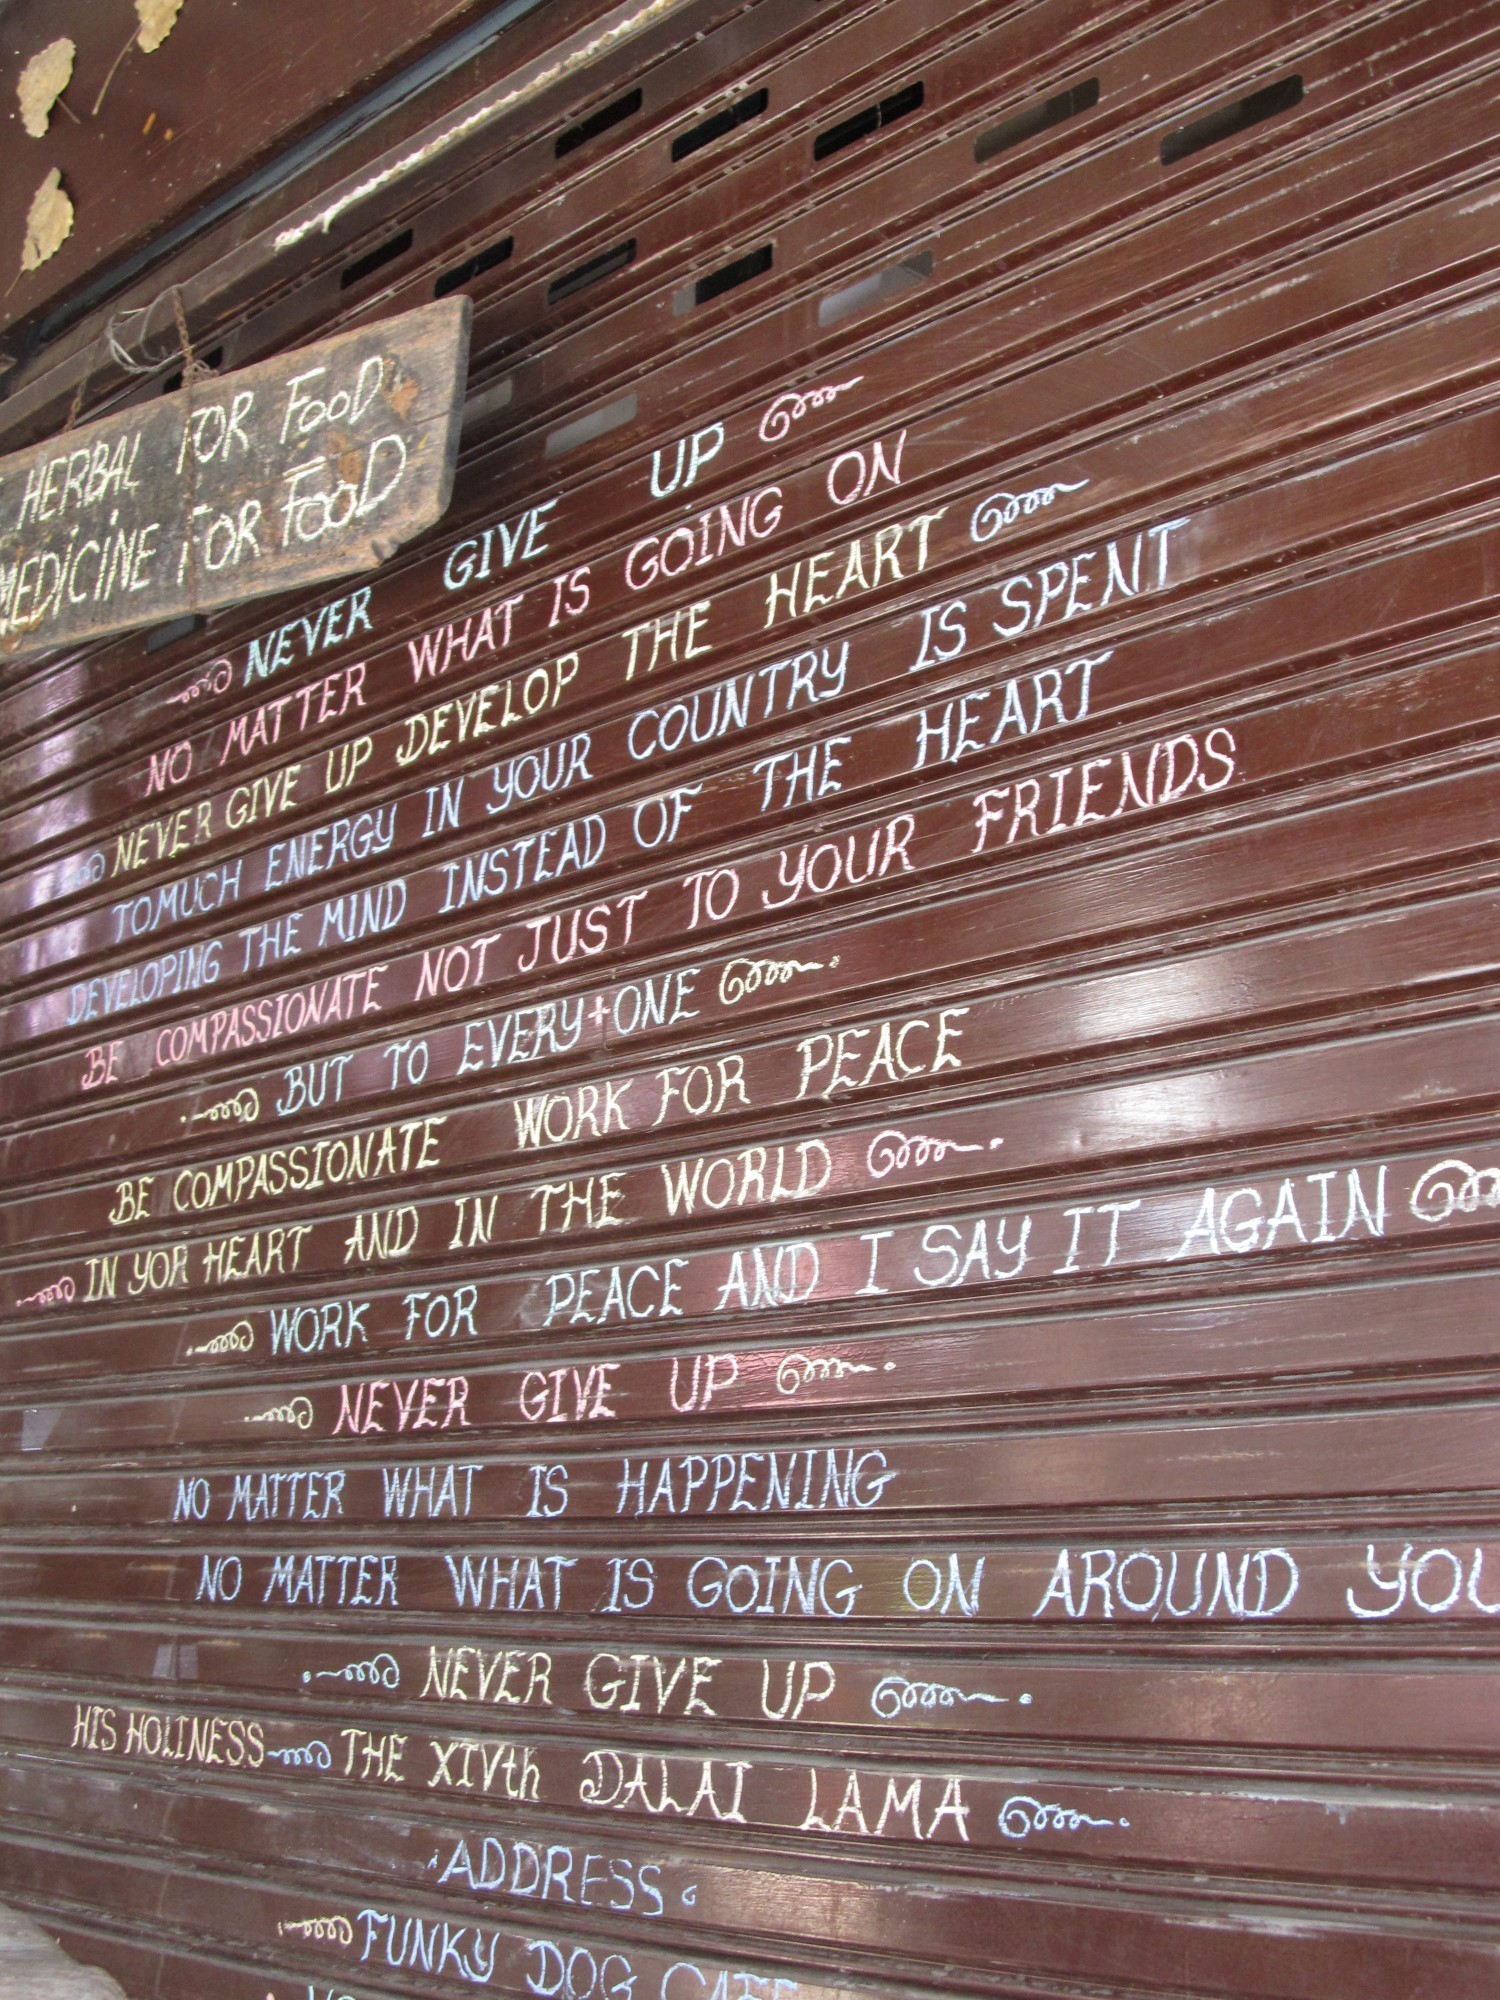 HERBAL FOR FOOD
MEDICINE FOR FOOD
NEVER GIVE UP
NO MATTER WHAT IS GOING ON
NEVER GIVE UP DEVELOP THE HEART
TOMUCH ENERGY IN YOUR COUNTRY IS SPENT
DEVELOPING THE MIND INSTEAD OF THE HEART
BE COMPASSIONATE NOT JUST TO YOUR FRIENDS
BUT TO EVERY+ONE
BE COMPASSIONATE WORK FOR PEACE
IN YOR HEART AND IN THE WORLD
WORK FOR PEACE AND I SAY IT AGAIN
NEVER GIVE UP
NO MATTER WHAT IS HAPPENING
NO MATTER WHAT IS GOING ON AROUND YOU
NEVER GIVE UP
HIS HOLINESS THE XIVth DALAI LAMA
ADDRESS
FUNKY DOG CAFE